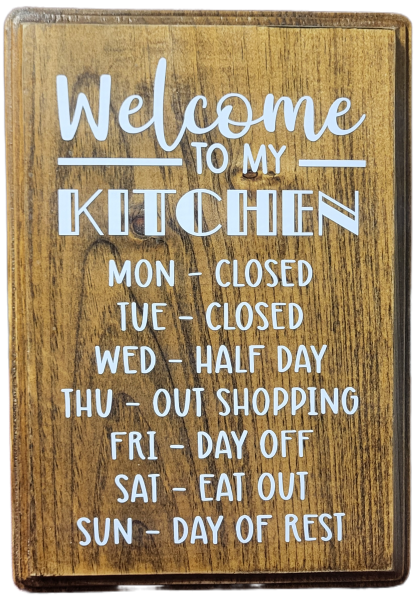 Welcome
TO MY
KITCHEN
MON - CLOSED
TUE - CLOSED
WED - HALF DAY
THU - OUT SHOPPING
FRI - DAY OFF
SAT - EAT OUT
SUN - DAY OF REST